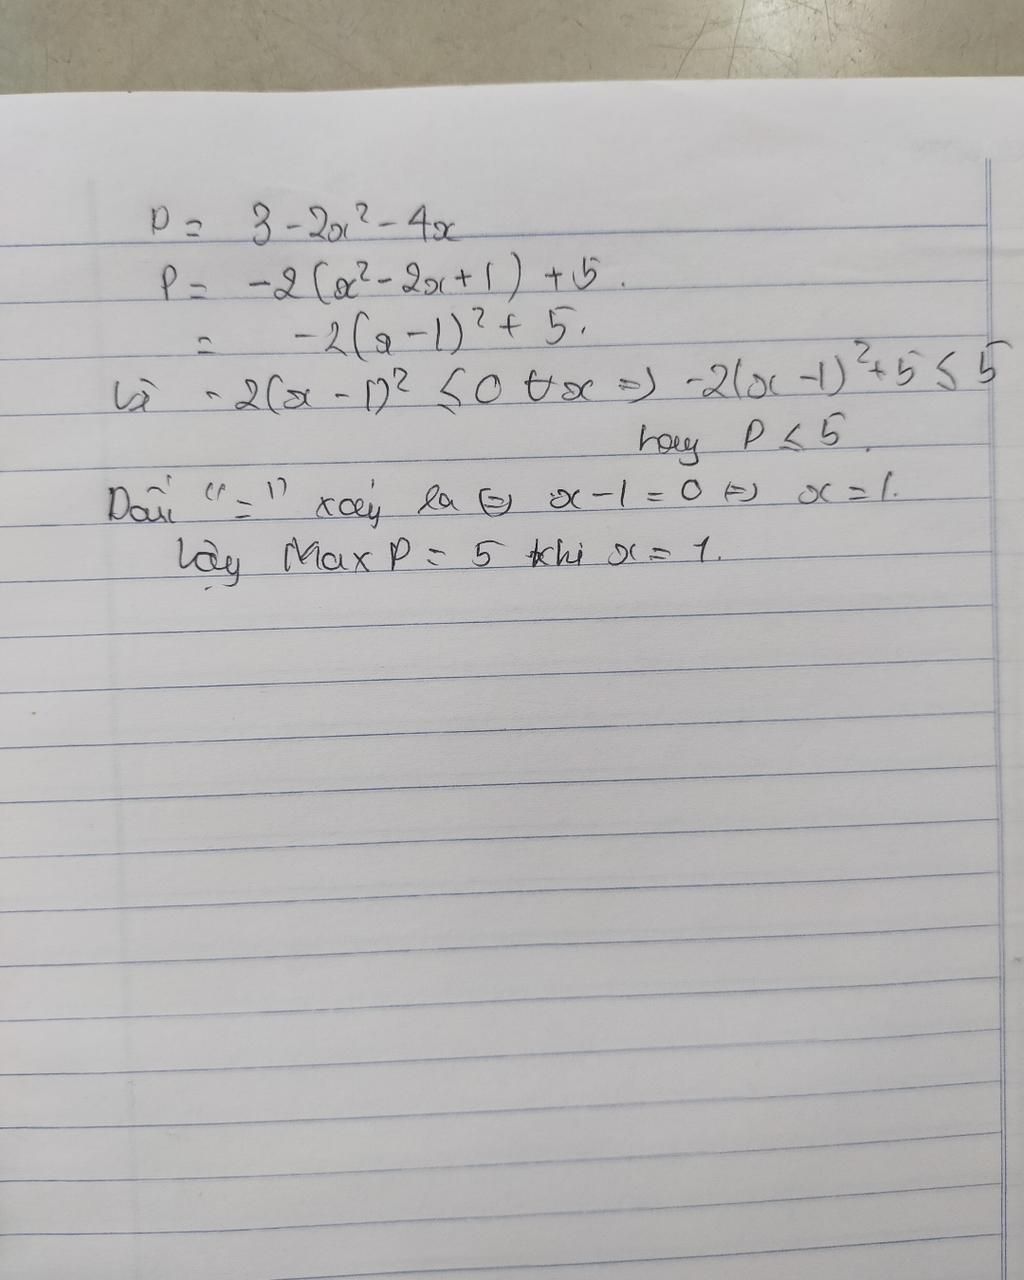 P = 3 - 2x² - 4x
P = -2(x² - 2x + 1) + 5.
= -2(x - 1)² + 5.
Vì -2(x - 1)² ≤ 0 ∀x => -2(x - 1)² + 5 ≤ 5
hay P ≤ 5.
Dấu "=" xảy ra <=> x - 1 = 0 <=> x = 1.
Vậy Max P = 5 khi x = 1.